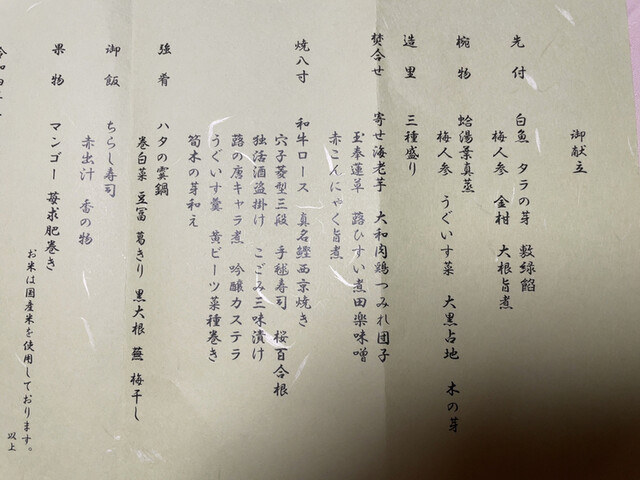 御献立
先付 白魚 タラの芽 数緑餡
梅人参 金柑 大根旨煮
椀物 蛤湯葉真蒸
梅人参 うぐいす菜 大黒占地 木の芽
造里 三種盛り
焚合せ 寄せ海老芋 大和肉鶏つみれ団子
玉奉蓮草 蕗ひすい煮田楽味噌
赤こんにゃく旨煮
焼八寸 和牛ロース 真名鰹西京焼き
穴子菱型三段 手毬寿司 桜百合根
独活酒盗掛け こごみ三味漬け
蕗の唐キャラ煮 吟醸カステラ
うぐいす羹 黄ビーツ菜種巻き
筍木の芽和え
強肴 ハタの霙鍋
巻白菜 豆冨 葛きり 黒大根 蕪 梅干し
御飯 ちらし寿司
赤出汁 香の物
果物 マンゴー 苺求肥巻き
お米は国産米を使用しております。
以上
令和